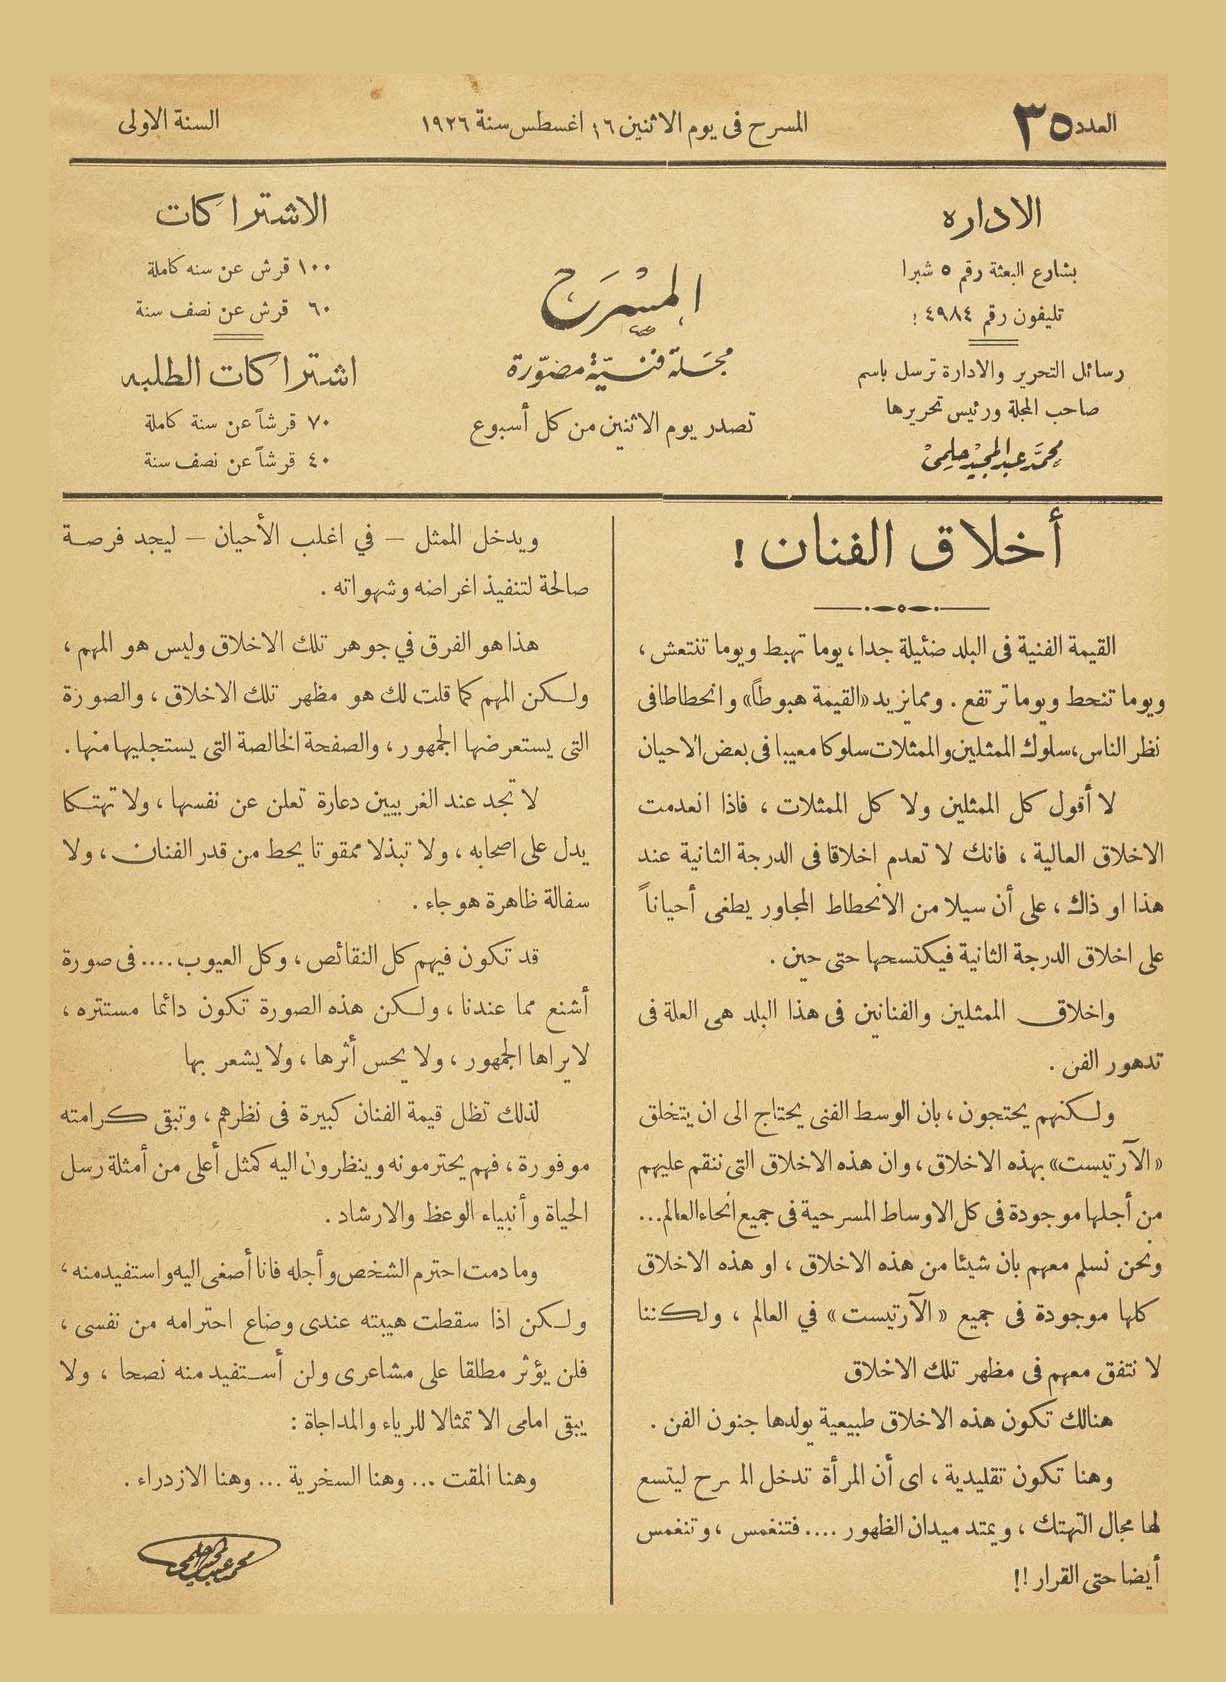 العدد ٣٥
المسرح فى يوم الاثنين ١٦ اغسطس سنة ١٩٢٦
السنة الاولى
الاداره
بشارع البعثة رقم ٥ شبرا
تليفون رقم ٤٩٨٤ !
رسائل التحرير والادارة ترسل باسم
صاحب المجلة ورئيس تحريرها
محمد عبد المجيد حلمى
المسرح
مجلة فنية مصورة
تصدر يوم الاثنين من كل أسبوع
الاشتراكات
١٠٠ قرش عن سنه كاملة
٦٠ قرش عن نصف سنة
اشتراكات الطلبه
٧٠ قرشاً عن سنة كاملة
٤٠ قرشاً عن نصف سنة
أخلاق الفنان !
القيمة الفنية فى البلد ضئيلة جدا ، يوما تهبط ويوما تنتعش ،
ويوما تنحط ويوما ترتفع . ومما يزيد «القيمة هبوطاً» وانحطاطا فى
نظر الناس ، سلوك الممثلين والممثلات سلوكا معيبا فى بعض الاحيان
لا أقول كل الممثلين ولا كل الممثلات ، فاذا انعدمت
الاخلاق العالية ، فانك لا تعدم اخلاقا فى الدرجة الثانية عند
هذا او ذاك ، على أن سيلا من الانحطاط المجاور يطغى أحياناً
على اخلاق الدرجة الثانية فيكتسحها حتى حين .
واخلاق الممثلين والفنانين فى هذا البلد هى العلة فى
تدهور الفن .
ولكنهم يحتجون ، بان الوسط الفنى يحتاج الى ان يتخلق
«الآرتيست» بهذه الاخلاق ، وان هذه الاخلاق التى ننقم عليهم
من أجلها موجودة فى كل الاوساط المسرحية فى جميع انحاء العالم ...
ونحن نسلم معهم بان شيئا من هذه الاخلاق ، او هذه الاخلاق
كلها موجودة فى جميع « الآرتيست » في العالم ، ولكننا
لا نتفق معهم فى مظهر تلك الاخلاق
هنالك تكون هذه الاخلاق طبيعية يولدها جنون الفن .
وهنا تكون تقليدية ، اى أن المرأة تدخل المسرح ليتسع
لها مجال التهتك ، ويمتد ميدان الظهور .... فتنغمس ، وتنغمس
أيضا حتى القرار !!
ويدخل الممثل — في اغلب الأحيان — ليجد فرصة
صالحة لتنفيذ اغراضه وشهواته .
هذا هو الفرق في جوهر تلك الاخلاق وليس هو المهم ،
ولكن المهم كما قلت لك هو مظهر تلك الاخلاق ، والصورة
التى يستعرضها الجمهور ، والصفحة الخالصة التى يستجليها منها .
لا تجد عند الغربيين دعارة تعلن عن نفسها ، ولا تهتكا
يدل على اصحابه ، ولا تبذلا ممقوتا يحط من قدر الفنان ، ولا
سفالة ظاهرة هوجاء .
قد تكون فيهم كل النقائص ، وكل العيوب .... فى صورة
أشنع مما عندنا ، ولكن هذه الصورة تكون دائما مستتره ،
لا يراها الجمهور ، ولا يحس أثرها ، ولا يشعر بها
لذلك تظل قيمة الفنان كبيرة فى نظرهم ، وتبقى كرامته
موفورة ، فهم يحترمونه وينظرون اليه كمثل أعلى من أمثلة رسل
الحياة وأنبياء الوعظ والارشاد .
وما دمت احترم الشخص وأجله فانا أصغى اليه واستفيد منه ،
ولكن اذا سقطت هيبته عندى وضاع احترامه من نفسى ،
فلن يؤثر مطلقا على مشاعرى ولن أستفيد منه نصحا ، ولا
يبقى امامى الا تمثالا للرياء والمداجاة :
وهنا المقت ... وهنا السخرية ... وهنا الازدراء .
محمد عبد المجيد حلمى